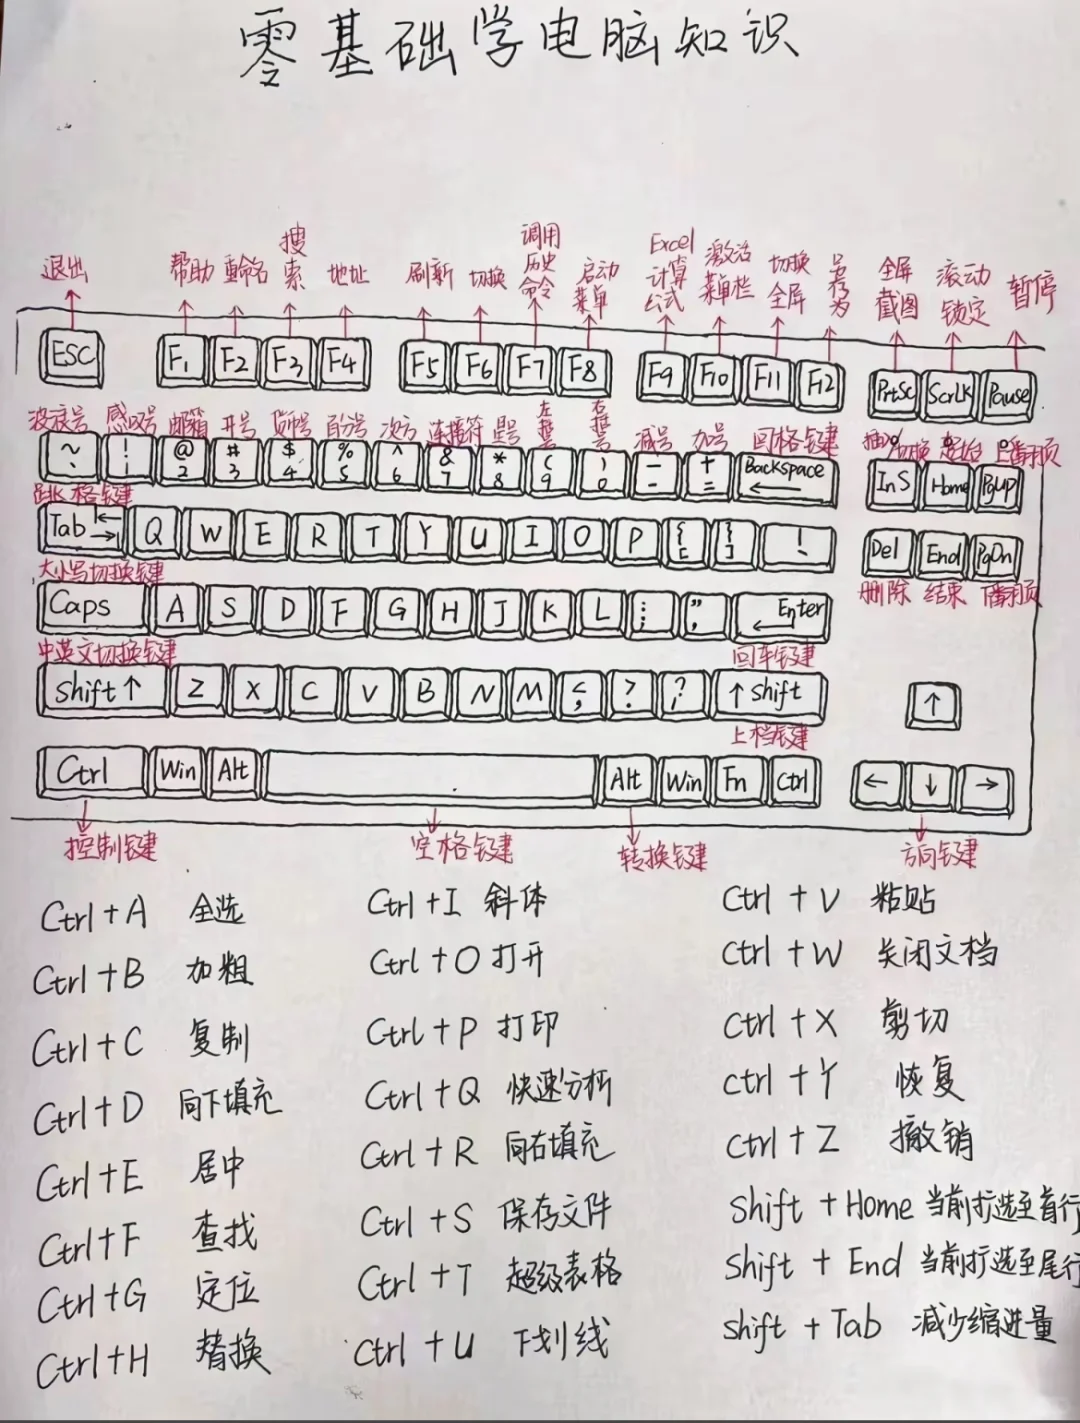 零基础学电脑知识
退出 帮助 重命名 搜索 地址 刷新 切换 调用历史命令 启动菜单 Excel计算公式 激活菜单栏 切换全屏 另存为 全屏截图 滚动锁定 暂停
ESC F1 F2 F3 F4 F5 F6 F7 F8 F9 F10 F11 F12 PrtSc ScrLK Pause
波浪号 感叹号 邮箱 井号 货币号 百分号 次方 连接符 星号 左括号 右括号 减号 加号 回格键 插入/切换 起始 上翻页
~ ! @ 2 # 3 $ 4 % 5 ^ 6 & 7 * 8 ( 9 ) 0 - - + = Backspace ← InS Home PgUp
跳格键
Tab Q W E R T Y U I O P { [ } ] Del End PgDn
大小写切换键 删除 结束 下翻页
Caps A S D F G H J K L : ; " , Enter
中英文切换键 回车键
Shift ↑ Z X C V B N M < , > . ? ↑ Shift ↑
上档键
Ctrl Win Alt Alt Win Fn Ctrl ← ↓ →
控制键 空格键 转换键 方向键
Ctrl+A 全选 Ctrl+I 斜体 Ctrl+V 粘贴
Ctrl+B 加粗 Ctrl+O 打开 Ctrl+W 关闭文档
Ctrl+C 复制 Ctrl+P 打印 Ctrl+X 剪切
Ctrl+D 向下填充 Ctrl+Q 快速分析 Ctrl+Y 恢复
Ctrl+E 居中 Ctrl+R 向右填充 Ctrl+Z 撤销
Ctrl+F 查找 Ctrl+S 保存文件 Shift+Home 当前打选至首行
Ctrl+G 定位 Ctrl+T 超级表格 Shift+End 当前打选至尾行
Ctrl+H 替换 Ctrl+U 下划线 Shift+Tab 减少缩进量